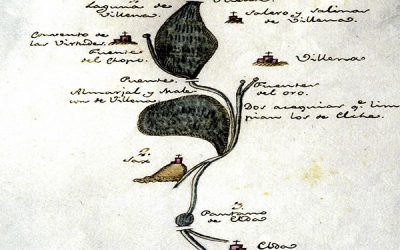 Laguna de
Villena.
Salero y salinas
de Villena.
Convento de
las Virtudes.
Fuente
del Chopo.
Villena
Puente.
Almarjal y
de Villena
Fuentes
del oro.
Dos acequias q.e lim
pian los de Elche.
2.
Sax
3.
Pantano
de Elda
Elda